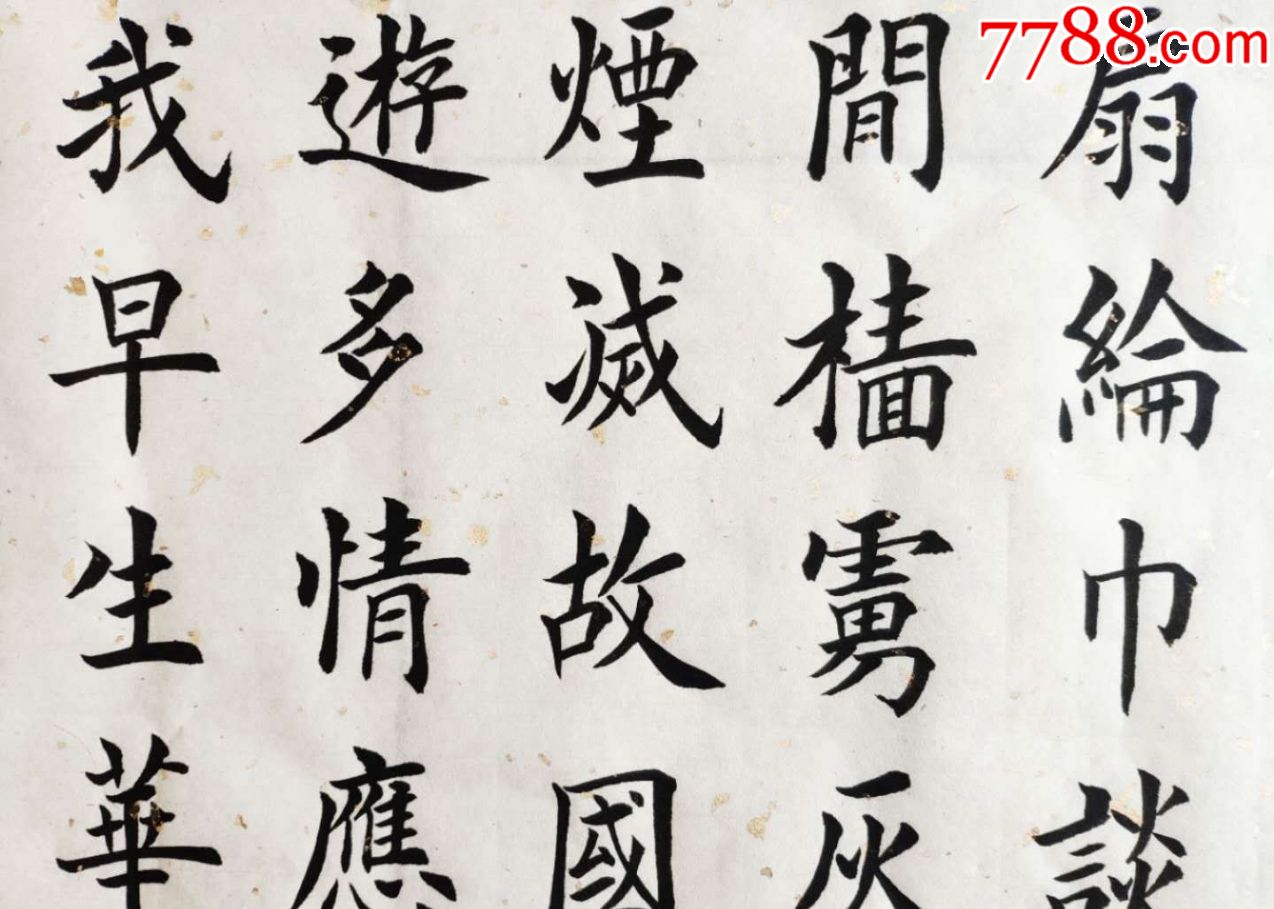 7788.com
扇綸巾談
閒檣虜灰
煙滅故國
遊多情應
我早生華